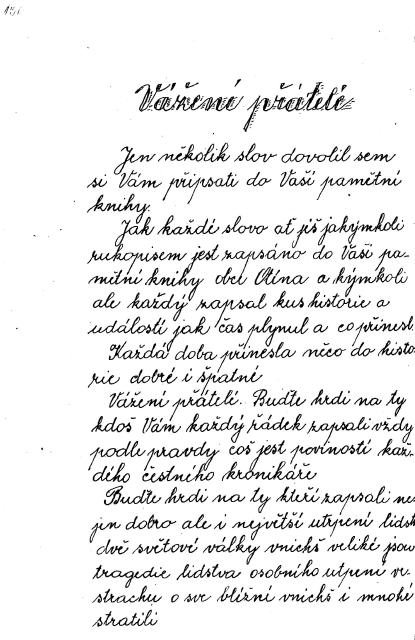 Vážení přátelé
Jen několik slov dovolil sem
si Vám připsati do Vaší pamětní
knihy.
Jak každé slovo ať jíš jakýmkoli
rukopisem jest zapsáno do Vaší pa-
mitní knihy obci Otína a kýmkoli
ale každý zapsal kus historie a
událostí jak čas plynul a co přinesl.
Každá doba přinesla něco do histo
rie dobré i špatné
Vážení přátelé. Buďte hrdi na ty
kdoš Vám každý řádek zapsali vždy
podle pravdy coš jest poviností kaž-
dého čestného kronikáře
Buďte hrdi na ty kteří zapsali ne
jen dobro ale i největší utrpení lidst
dvě světové války vnichš veliké jsou
tragedie lidstva osobního utpení ve
strachu o sve bližní vnichš i mnohé
stratili